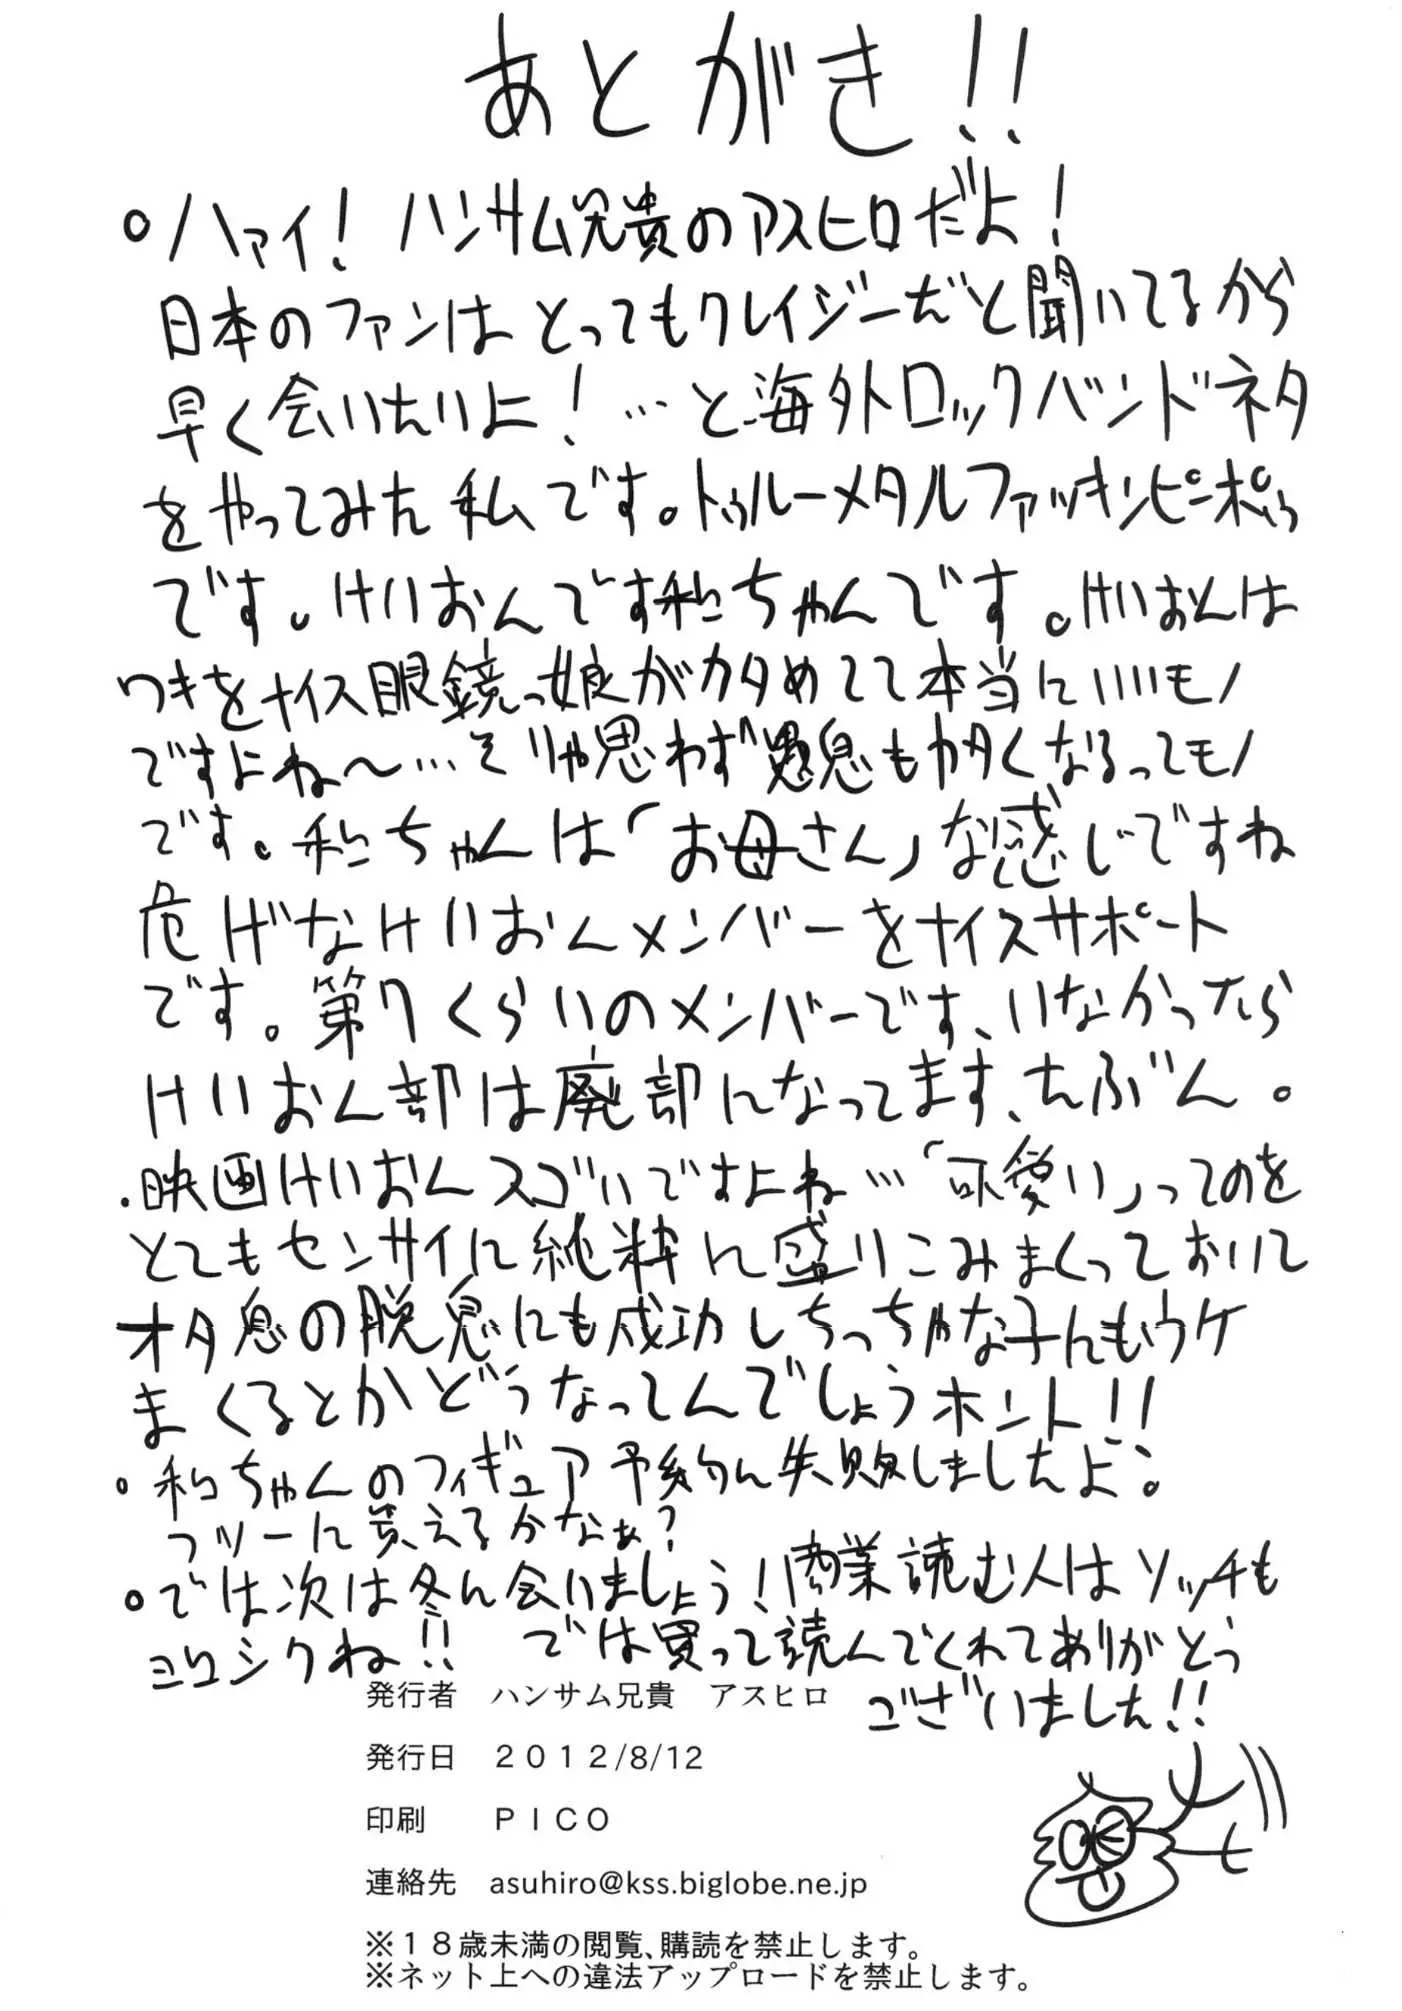 あとがき!!
○ハァイ! ハンサム兄貴のアスヒロだよ!
日本のファンはとってもクレイジーだと聞いてるから
早く会いたいよ!…と海外ロックバンドネタ
をやってみた私です。トゥルーメタルファッキンピンポゥ
です。けいおんです和ちゃんです。けいおんは
ワキをナイス眼鏡っ娘がカタめてて本当にいいモノ
ですよね〜…そりゃ思わず愚息もカタくなるってモノ
です。和ちゃんは「お母さん」な感じですね
危げなけいおんメンバーをナイスサポート
です。第7くらいのメンバーです、いなかったら
けいおん部は廃部になってます、たぶん。
・映画けいおんスゴいですよね…「可愛い」ってのを
とてもセンサイに純粋に盛りこみまくっておいて
オタ息の脱臭にも成功しちっちゃな子にもウケ
まくるとかどうなってんでしょうホント!!
○和ちゃんのフィギュア予約に失敗しましたよ。
フツーに買えるかなぁ?
○では次は冬に会いましょう!商業読む人はソッチも
ヨロシクね!! では買って読んでくれてありがとう
ございました!!
発行者 ハンサム兄貴 アスヒロ
発行日 2012/8/12
印刷 PICO
連絡先 asuhiro@kss.biglobe.ne.jp
※18歳未満の閲覧、購読を禁止します。
※ネット上への違法アップロードを禁止します。